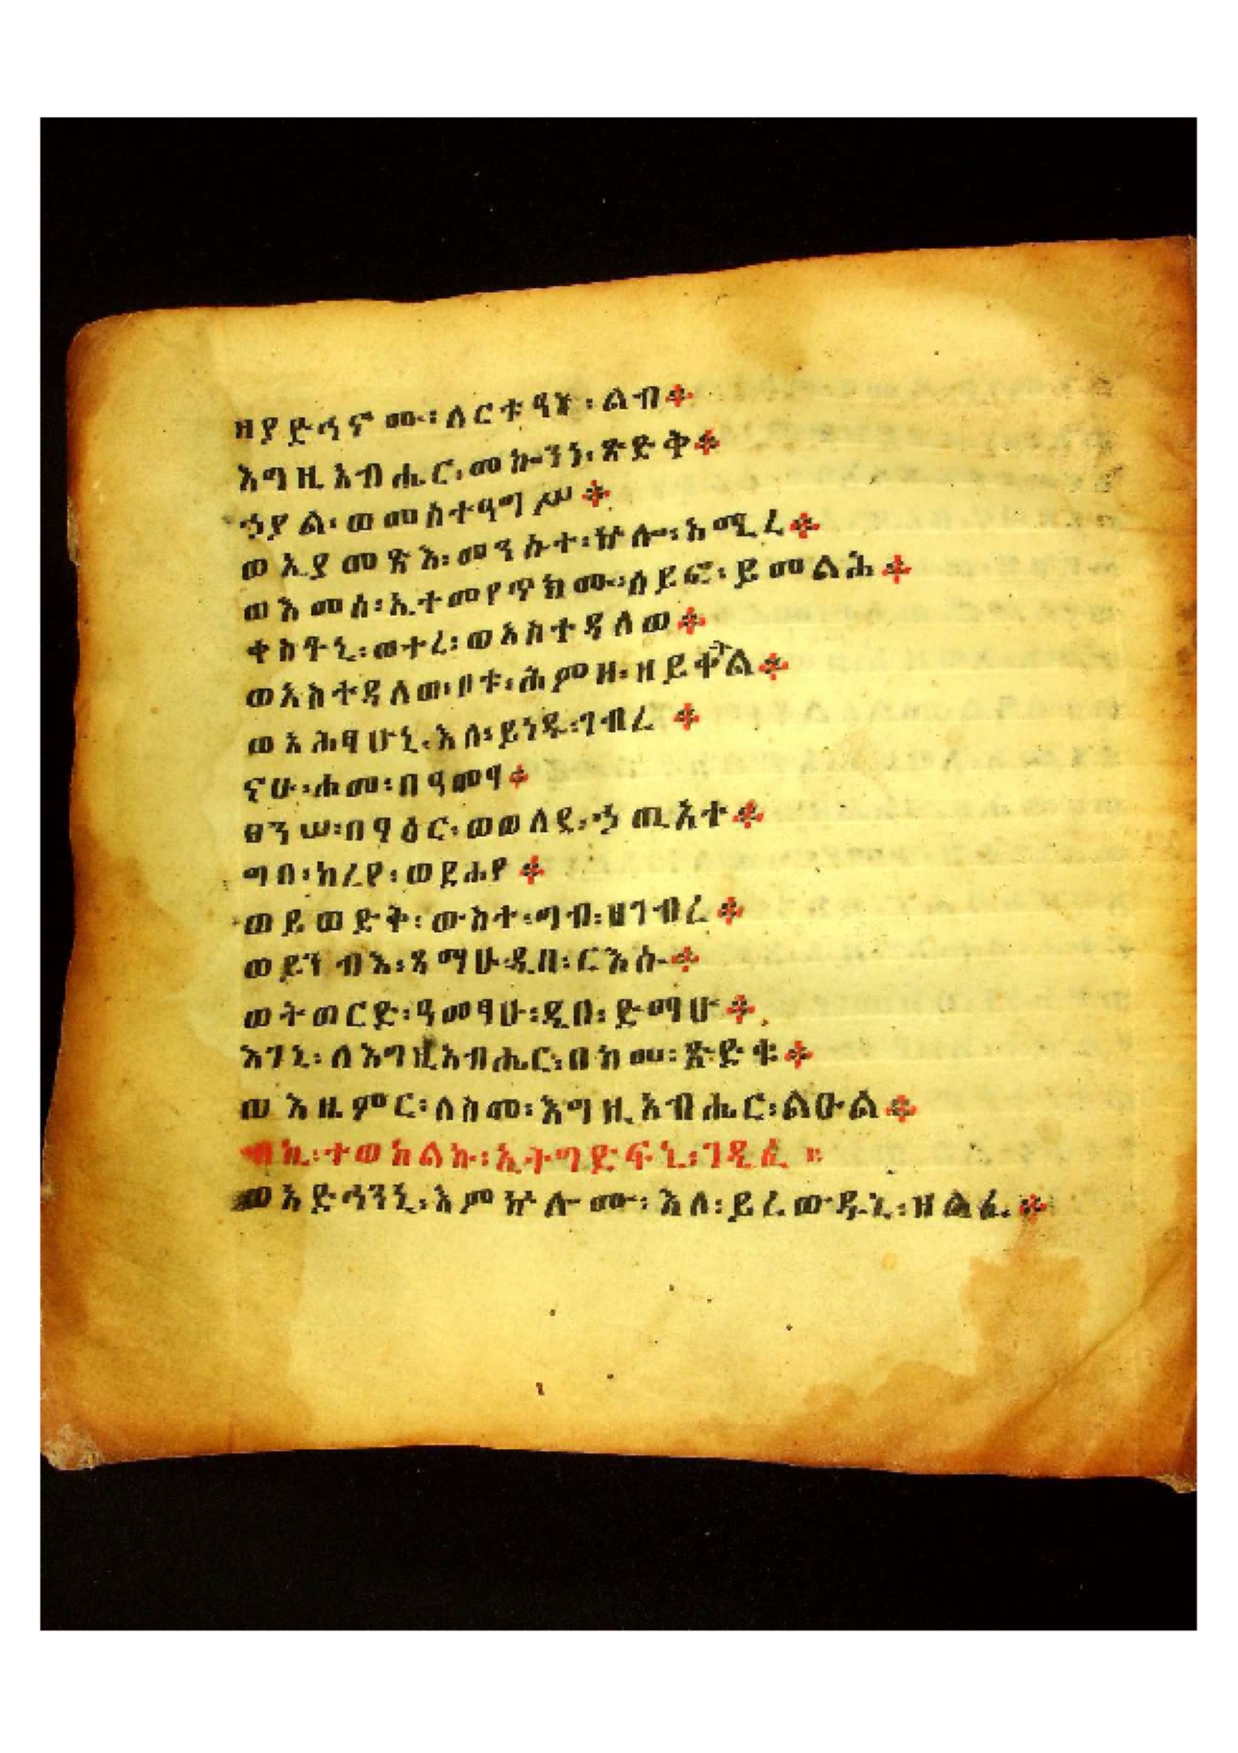 ዘያድኅኖሙ፡ለርቱዓነ፡ልብ፨
እግዚአብሔር፡መኰንነ፡ጽድቅ፨
ኃያል፡ወመስተዓግሥ፨
ወኢያመጽእ፡መንሱተ፡ኵሎ፡አሚረ፨
ወእመሰ፡ኢተመየጥክሙ፡ሰይፎ፡ይመልሕ፨
ቀስቶኒ፡ወተረ፡ወአስተዳለወ፨
ወአስተዳለወ፡ቦቱ፡ሕምዘ፡ዘይቀትል፨
ወአሕፃሁኒ፡እለ፡ይነዱ፡ገብረ፨
ናሁ፡ሐመ፡በዓመፃ፨
ፀንሠ፡በፃዕር፡ወወለደ፡ኃጢአተ፨
ግበ፡ከረየ፡ወደሐየ፨
ወይወድቅ፡ውስተ፡ግብ፡ዘገብረ፨
ወይገብእ፡ጻማሁ፡ዲበ፡ርእሱ፨
ወትወርድ፡ዓመፃሁ፡ዲበ፡ድማሁ፨
እገኒ፡ለእግዚአብሔር፡በከመ፡ጽድቁ፨
ወእዜምር፡ለስመ፡እግዚአብሔር፡ልዑል፨
ብከ፡ተወከልኩ፡ኢትግድፍኒ፡ገዲፈ።
ወአድኅንኒ፡እምኵሎሙ፡እለ፡ይረውዱኒ፡ዘልፈ፨